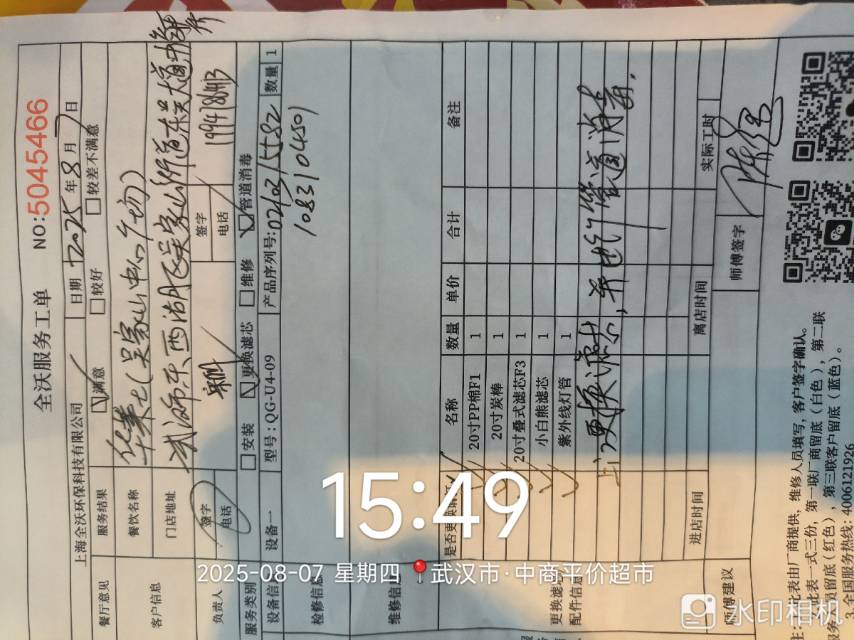 全沃服务工单 NO:5045466
上海全沃环保科技有限公司 日期 2025年8月7日
餐厅意见 服务结果 满意 较好 较差不满意
客户信息 餐饮名称 华莱士(吴家山中心广场)
门店地址 武汉市东西湖区吴家山街道东吴大道
负责人 签字 签字
电话 电话
服务类别 安装 更换滤芯 维修 管道消毒
设备信息 设备一 型号:QG-U4-09 产品序列号: 数量 1
检修信息
1083104501
维修信息
名称 数量 单价 合计 备注
20寸PP棉F1 1
20寸炭棒 1
20寸叠式滤芯F3 1
小白熊滤芯 1
紫外线灯管 1
更换滤芯,并进行管道消毒.
配件信息
进店时间 离店时间 实际工时
师傅建议 师傅签字
此表由厂商提供,维修人员填写,客户签字确认。
此表一式三份,第一联厂商留底(白色),第二联
员留底(红色),第三联客户留底(蓝色)。
3.全国服务热线:4006121926
15:49
2025-08-07 星期四 武汉市·中商平价超市
水印相机